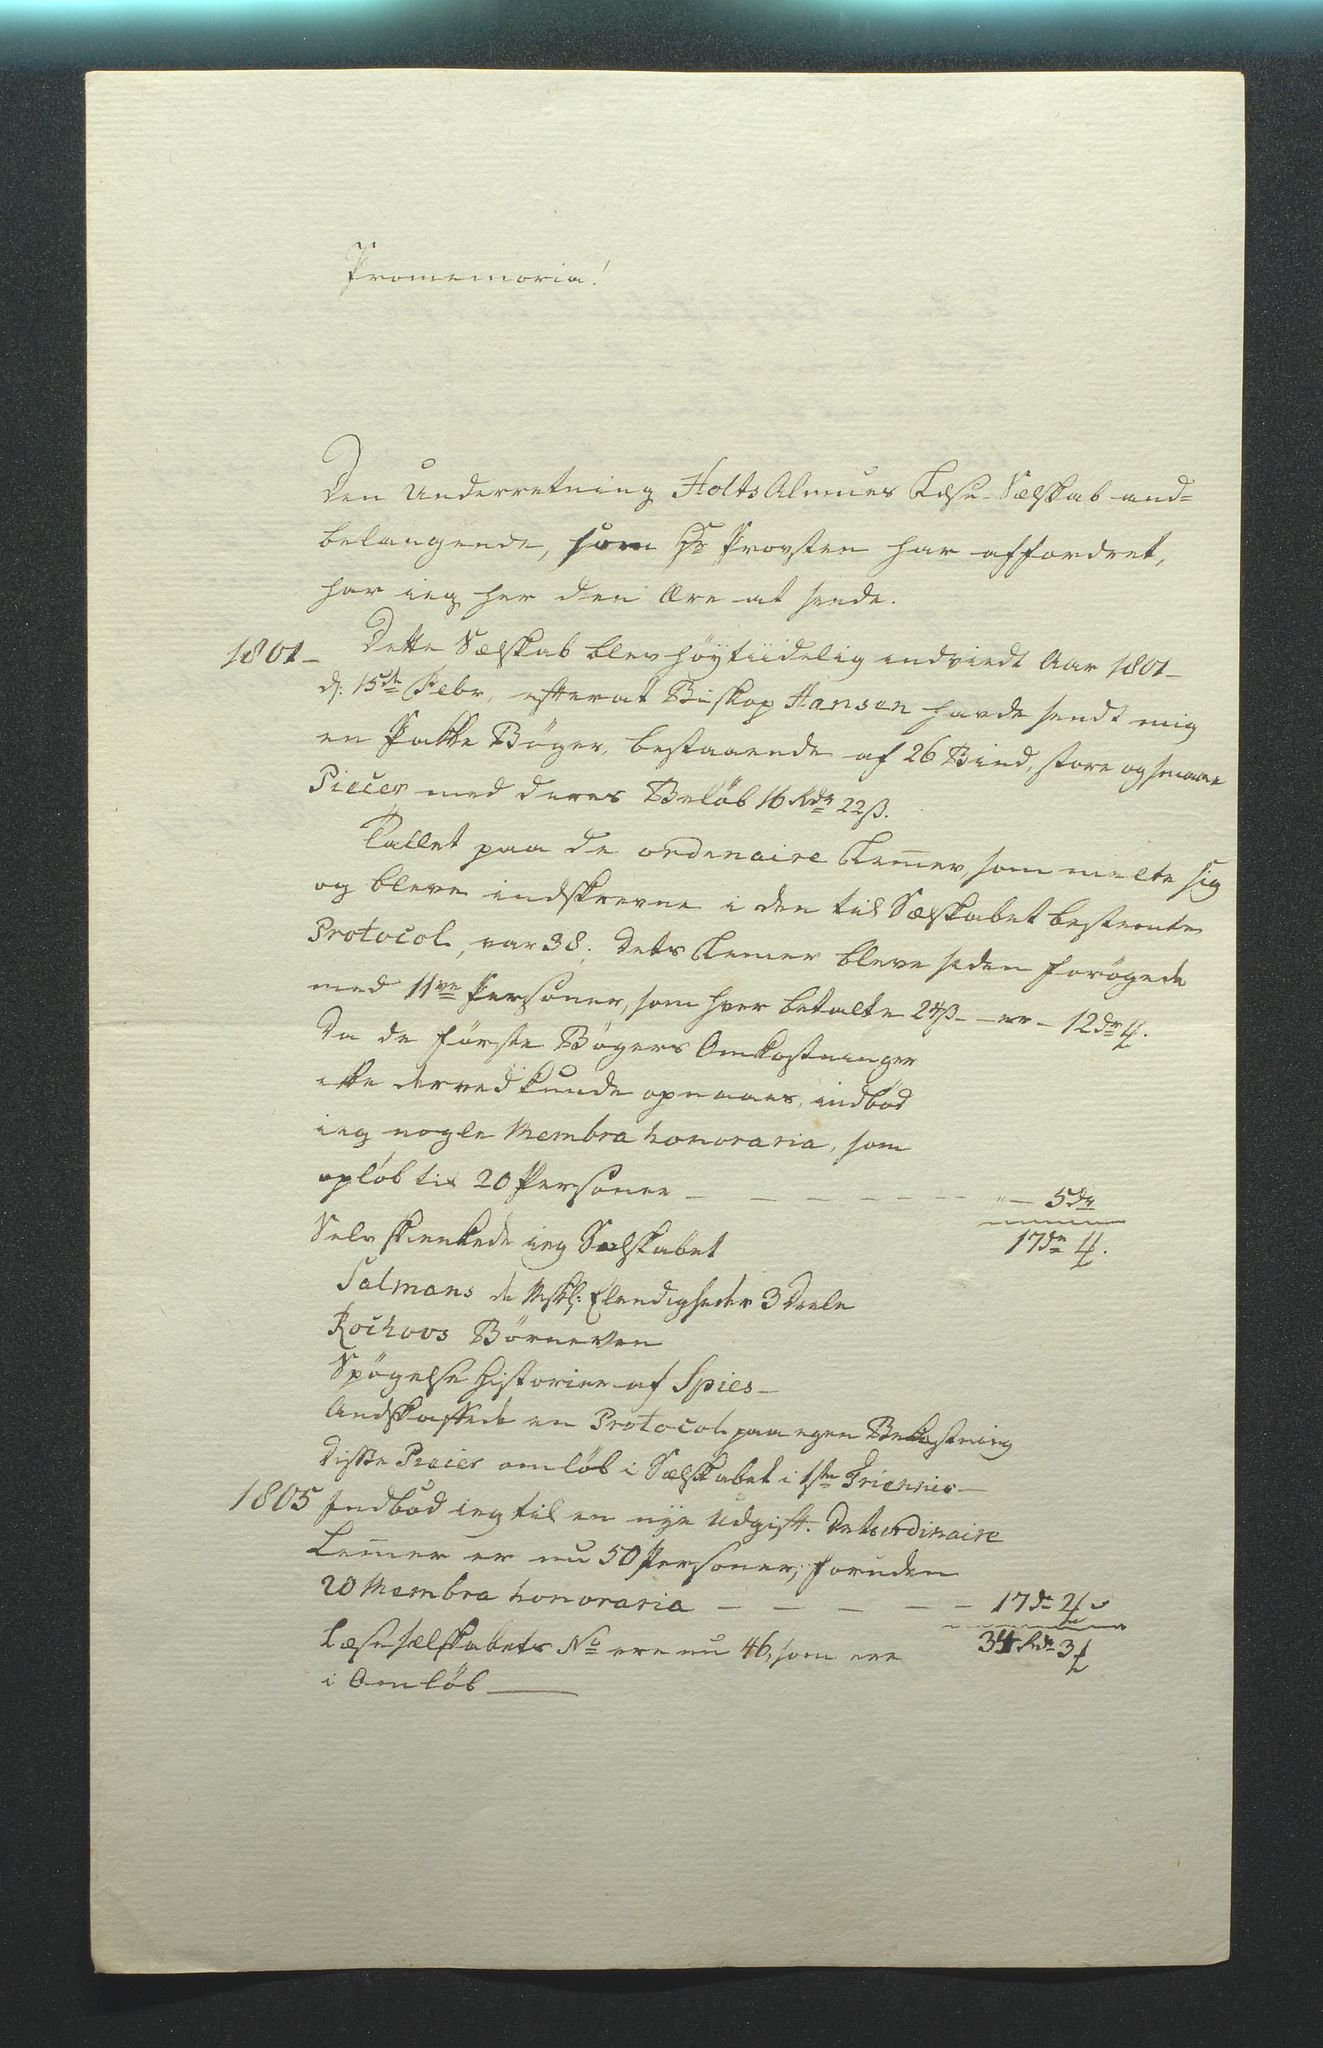 Promemoria!
Den Underretning Holts Almues Læse-Selskab and=
belangende, som Hr Provsten har affordret,
har ieg her den Ære at sende.
1801- Dette Selskab blev höytiidelig indviedt Aar 1801-
d: 15de Febr, efterat Biskop Hansen havde sendt mig
en Pakke Böger, bestaaende af 26 Bind, store og smaae
Piecer med deres Belöb 16 Rdr 22ß.
Tallet paa de ordenaire Lemer, som melte sig
og bleve indskrevne i den til Selskabet bestemte
Protocol, var 38; dets Lemer bleve siden forögede
med 11ve Personer, som hver betalte 24ß - er - 12dr
Da de förste Bögers Omkostninger
ikke derved kunde opnaaes, indböd
ieg nogle Membra honoraria, som
oplöb til 20 Personer - - - - - - - - " - 5dr
Selv skienkede ieg Selskabet 17dr
Salmans de Mskl: Elendigheder 3 Deele
Rochovs Börneven
Spögelse Historier af Spies-
Andskaffede en Protocol paa egen Bekostning
Disse Piecer omlöb i Selskabet i 1ste Triennio-
1805 Indböd ieg til en nye Udgift. Dets ordinaire
Lemer er nu 50 Personer, foruden
20 Membra honoraria - - - - - 17dr
Læse selskabets No ere nu 46, som ere 34 Rdr
i Omlöb -